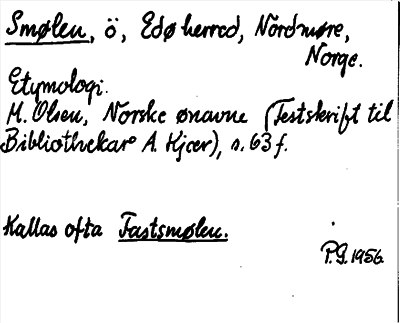 Smølen, ö, Edø herred, Nordmøre,
Norge.
Etymologi.
M. Olsen, Norske ønavne (Festskrift til
Bibliothekar A. Kjær), s. 63 f.
Kallas ofta Fastsmølen.
P.G. 1956